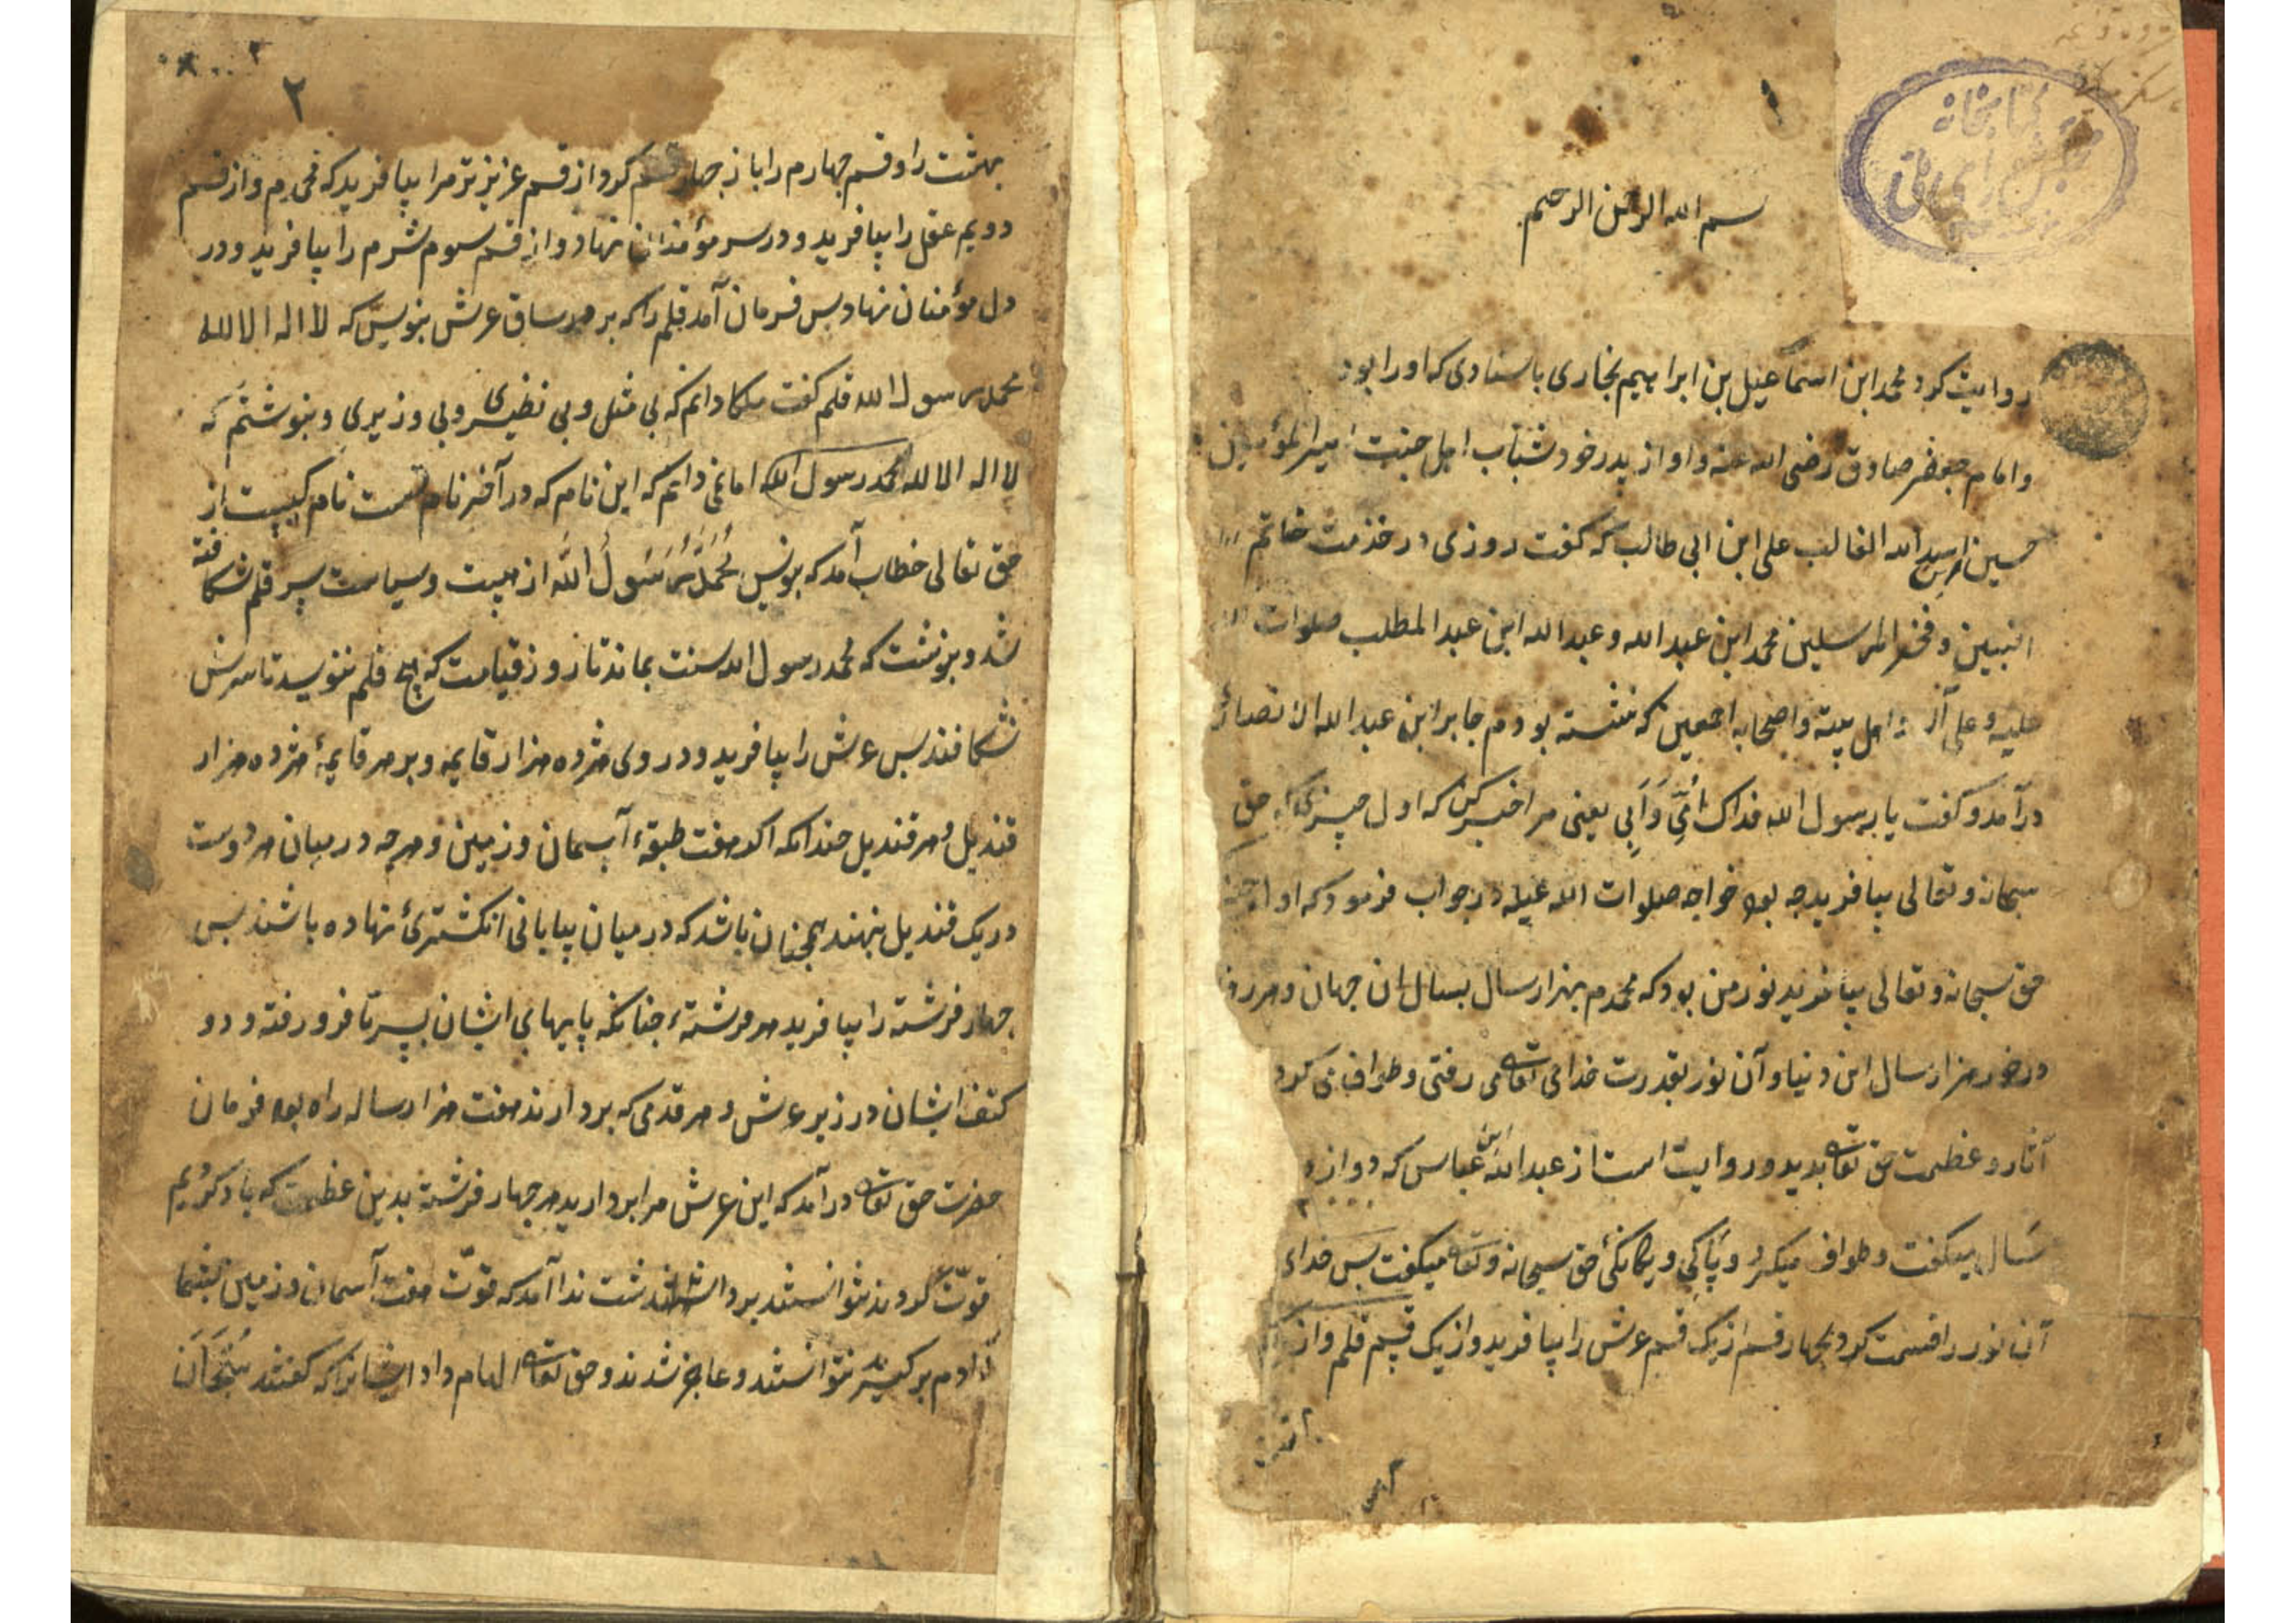 ۱
کتابخانه
مجلس شورای ملی
بسم الله الرحمن الرحیم
روایت کرد محمد ابن اسماعیل بن ابراهیم بخاری باسنادی که او را بود
و امام جعفر صادق رضی الله عنه و او از پدر خود شباب اهل جنت امیرالمؤمنین
حسین اسد الله الغالب علی ابن ابی طالب که گفت روزی در خدمت خاتم
النبیین و فخر المرسلین محمد ابن عبد الله و عبد الله ابن عبد المطلب صلوات
علیه و علی آله و اهل بیته و اصحابه اجمعین که نشسته بودم جابر ابن عبد الله الانصاری
درآمد و گفت یا رسول الله فداک اُمّی وَاَبی یعنی مرا خبر کن که اول چیزی که حق
سبحانه و تعالی بیافرید چه بود خواجه صلوات الله علیه در جواب فرمود که اول
حق سبحانه و تعالی بیافرید نور من بود که محمدم بهزار سال بسال ان جهان و هر روز
در هزار سال این دنیا و آن نور بقدرت خدای تعالی می رفتی و طواف می کرد
آثار و عظمت حق تعالی بدید و روایت است از عبد الله ابن عباس که دوازده
سال میگفت و طواف میکرد و پاکی و یگانگئ حق سبحانه و تعالی میگفت پس خداء
آن نور را قسمت کرد بچهار قسم از یک قسم عرش را بیافرید و از یک قسم قلم و از
۲
بهشت را و قسم چهارم را باز چهار قسم کرد و از قسم عزیزتر مرا بیافرید که محمدم و از قسم
دویم عقل را بیافرید و در سر مؤمنان نهاد و از قسم سوم شرم را بیافرید و در
دل مؤمنان نهاد پس فرمان آمد قلم را که بر هر ساق عرش بنویس که لا اله الا الله
محمد رسول الله قلم گفت ملکا دانم که بی مثل و بی نظیری و بی وزیری و بنوشتم که
لا اله الا الله محمد رسول الله اما نمی دانم که این نام که در آخر نام تست نام کیست از
حق تعالی خطاب آمد که بنویس مُحَمَّد رَسُولُ اللَّه از هیبت و سیاست سر قلم شکافته
شد و بنوشت که محمد رسول الله سنت بماند تا روز قیامت که هیچ قلم ننویسد تا سرش
نشکافند پس عرش را بیافرید و در وی هژده هزار قایمه و بر هر قایمهٔ هژده هزار
قندیل و هر قندیل چندانکه اگر هفت طبقهٔ آسمان و زمین و هر چه در میان هر دوست
در یک قندیل بنهند همچنان باشد که در میان بیابانی انگشتریٔ نهاده باشند پس
چهار فرشته را بیافرید هر فرشتهء چنانکه پایهای ایشان بسرتا فرو رفته و دو
کتف ایشان در زیر عرش و هر قدمی که بردارند هفت هزار ساله راه بود فرمان
حضرت حق تعالی درآمد که این عرش مرا بردارید هر چهار فرشته بدین عظمت که یاد کردیم
قوّت کردند نتوانستند برداشت ندا آمد که قوّت هفت آسمان و زمین بشما
دادم برگیرید نتوانستند و عاجز شدند و حق تعالی الهام داد ایشانرا که گفتند سُبْحَانَ